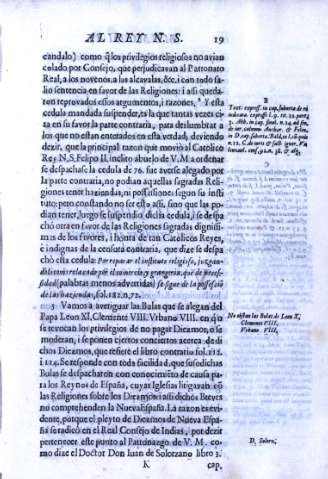 AL REY N. S. 19
candalo) como q̃ los privilegios religiosos no avian
colado por Consejo, que perjudicavan al Patronato
Real, a los novenos, a las alcavalas, &c. i con todo sa-
lio sentencia en favor de las Religiones: i assi queda-
ron reprovados essos argumentos, i razones, Y esta
cedula mandada suspender, es la que tantas vezes ci-
ta en su favor la parte contraria, para deslumbrar a
los que no estan enterados en esta verdad, deviendo
dezir, que la principal razon que movió al Catolico
Rey N. S. Felipo II. inclito abuelo de V. M. a ordenar
se despachasse la cedula de 76. fue averse alegado por
la parte contraria, no podian aquellas sagradas Reli-
giones tener haziendas, ni possessiones segun su insti-
tuto; pero constando no ser esto assi, sino que las po-
dian tener, luego se suspendió dicha cedula, i se despa-
chó otra en favor de las Religiones sagradas dignissi-
mas de los favores, i honra de tan Catolicos Reyes,
e indignas de la censura contraria, que dize se despa-
chò esta cedula: Por reparar el instituto religioso, juzgan-
dole
(palabras menos advertidas) se sigue de la possessiõ
de las haziendas, fol. 
5 Vamos a averiguar las Bulas que se alegan del
Papa Leon XI, Clemente VIII. Vrbano VIII. en q̃
se revocan los privilegios de no pagar Diezmos, o se
moderan, i se ponen ciertos conciertos acerca de di-
chos Diezmos, que refiere el libro contrario fol. 112.
i 114. Se responde con toda facilidad, que sus dichas
Bulas se despacharon con conocimiento de causa pa-
ra los Reynos de España, cuyas Iglesias litigavan cõ
las Religiones sobre los Diezmos: i assi dichos Breves
no comprehenden la Nueva España. La razon es evi-
dente, porque el pleyto de Diezmos de Nueva Espa-
ña se radicó en el Real Consejo de Indias, por dezir
pertenecer este punto al Patronazgo de V. M. co-
mo dize el Doctor Don Iuan de Solorzano libro 3.
K cap.
No obstan las Bulas de Leon X,
Clemente VIII,
Vrbano VIII.
D. Solorz.